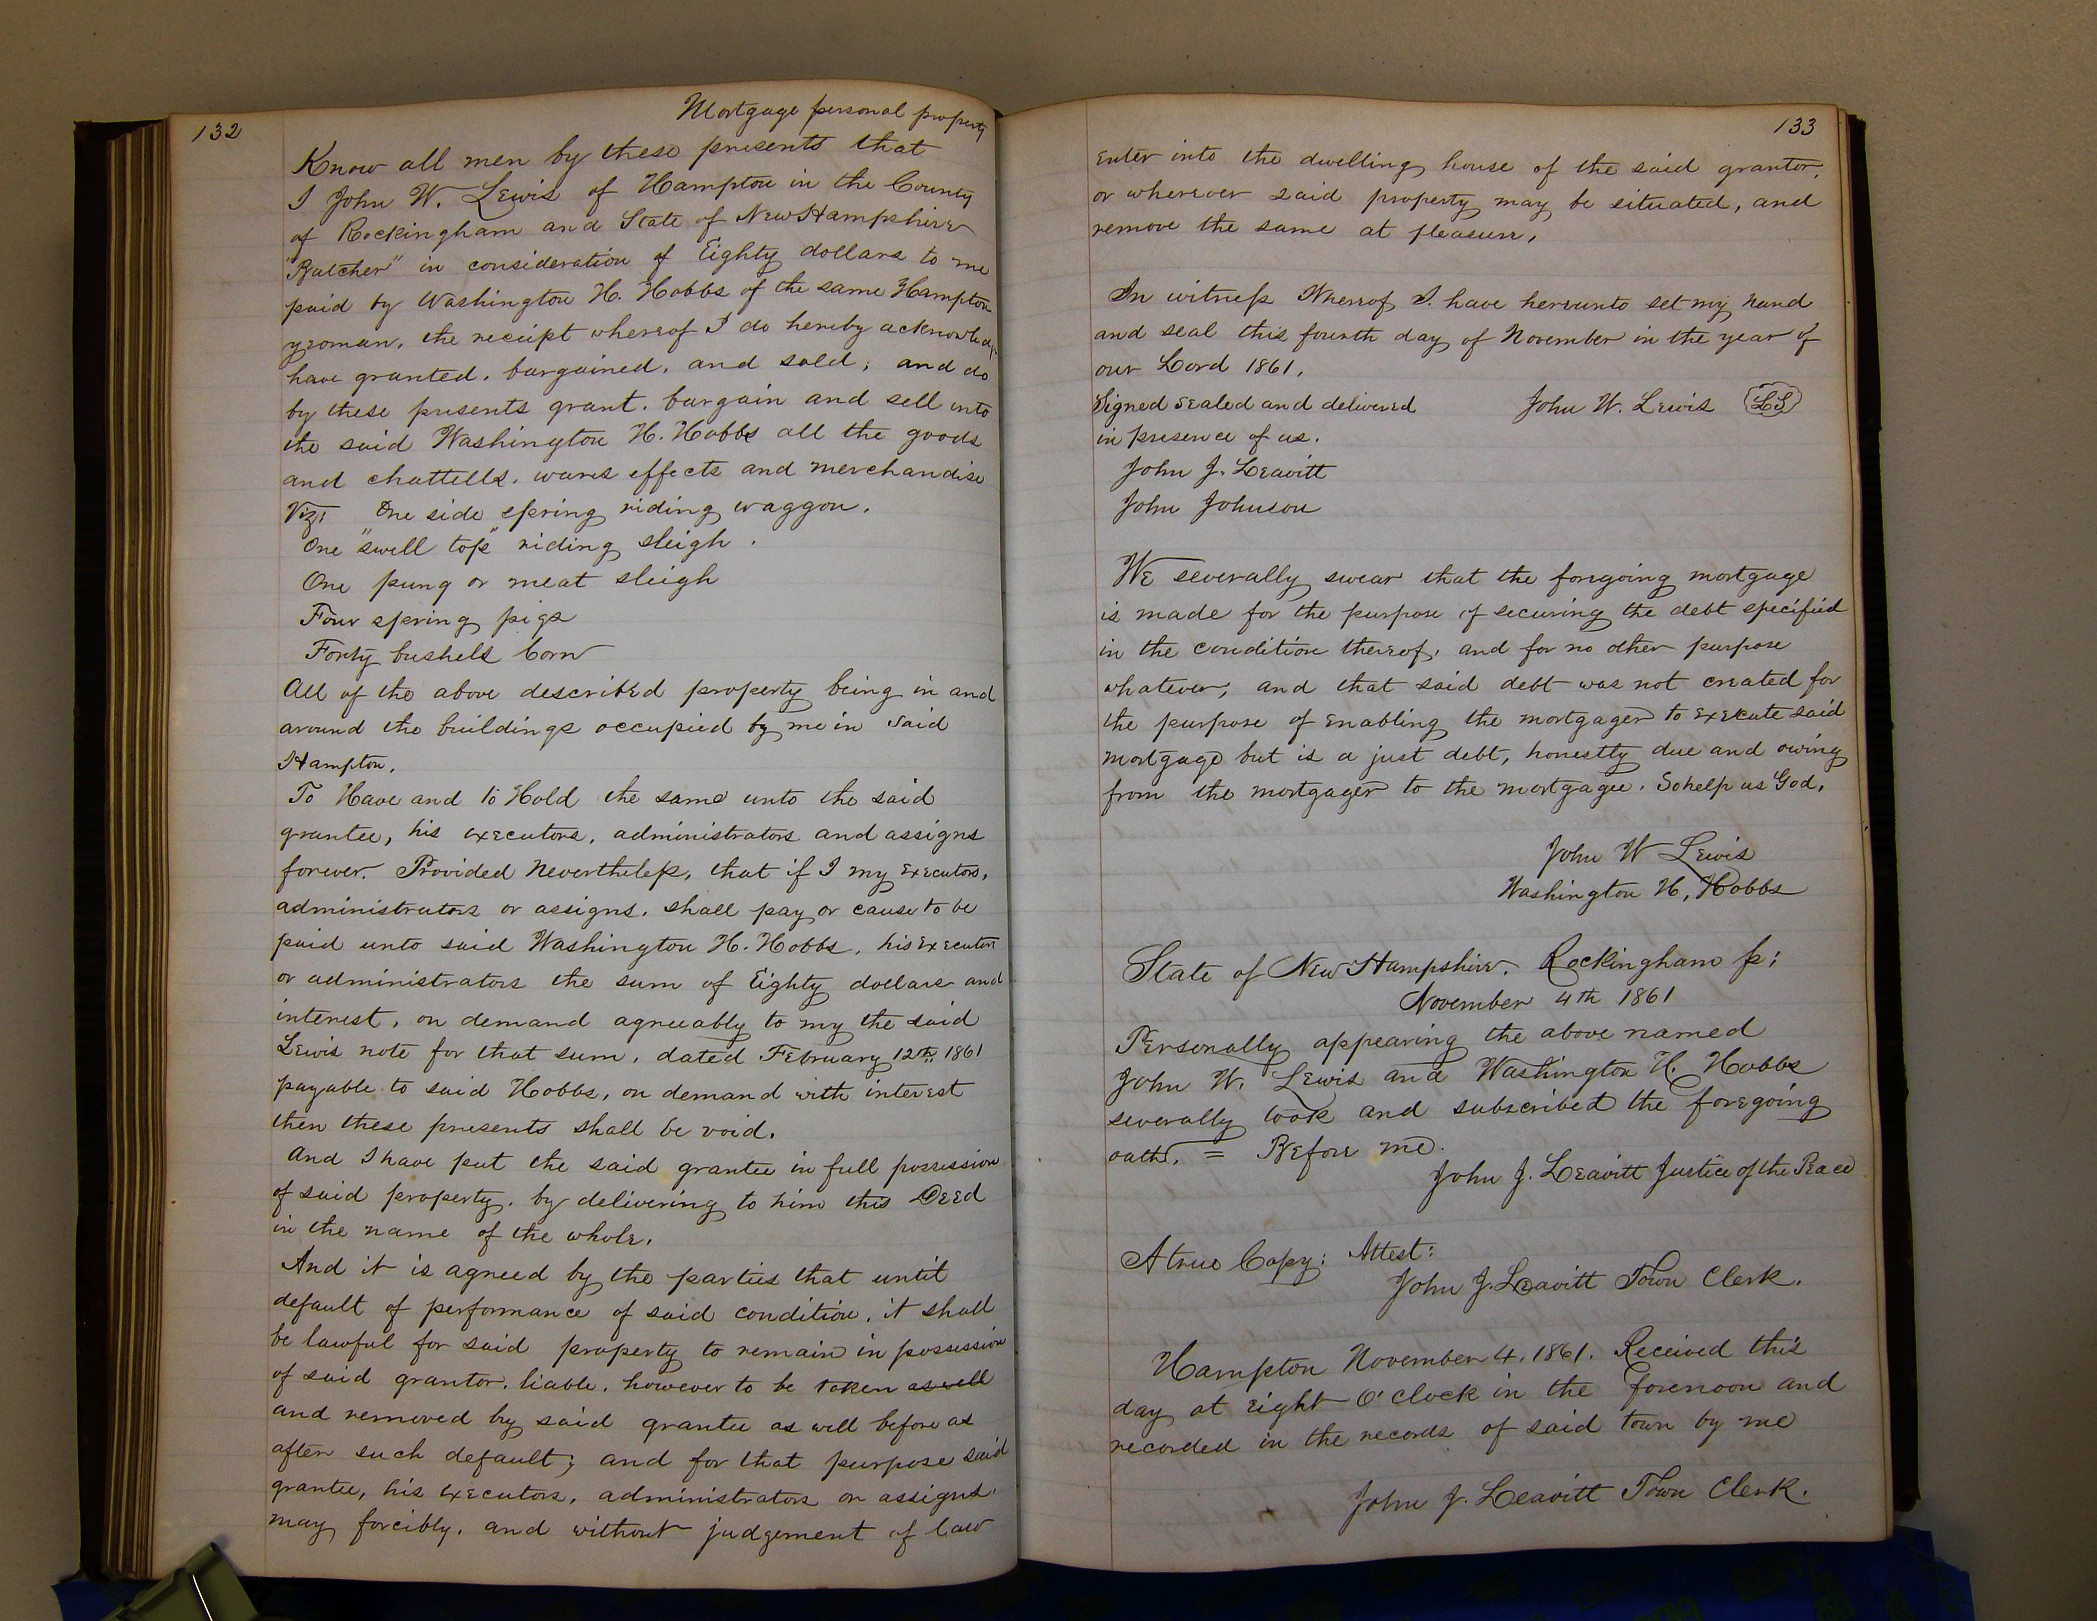 132
Mortgage personal property
Know all men by these presents that
I John W. Lewis of Hampton in the County
of Rockingham and State of New Hampshire
"Butcher" in consideration of Eighty dollars to me
paid by Washington H. Hobbs of the same Hampton
yeoman, the receipt whereof I do hereby acknowledge
have granted, bargained, and sold; and do
by these presents grant, bargain and sell unto
the said Washington H. Hobbs all the goods
and chattells, wares effects and merchandise
Viz: One side spring riding waggon.
One "swell top" riding sleigh.
One pung or meat sleigh
Four spring pigs
Forty bushels Corn
All of the above described property being in and
around the buildings occupied by me in said
Hampton.
To Have and to Hold the same unto the said
grantee, his executors, administrators and assigns
forever. Provided Nevertheless, that if I my executors,
administrators or assigns, shall pay or cause to be
paid unto said Washington H. Hobbs, his executors
or administrators the sum of Eighty dollars and
interest, on demand agreeably to my the said
Lewis note for that sum, dated February 12th 1861
payable to said Hobbs, on demand with interest
then these presents shall be void.
And I have put the said grantee in full possession
of said property, by delivering to him this Deed
in the name of the whole.
And it is agreed by the parties that until
default of performance of said condition, it shall
be lawful for said property to remain in possession
of said grantor, liable, however to be taken as well
and removed by said grantee as well before as
after such default; and for that purpose said
grantee, his executors, administrators or assigns,
may forcibly, and without judgement of law
133
enter into the dwelling house of the said grantor,
or wherever said property may be situated, and
remove the same at pleasure.
In witness Whereof I have hereunto set my hand
and seal this fourth day of November in the year of
our Lord 1861.
Signed sealed and delivered John W. Lewis LS
in presence of us.
John J. Leavitt
John Johnson
We severally swear that the foregoing mortgage
is made for the purpose of securing the debt specified
in the condition thereof, and for no other purpose
whatever, and that said debt was not created for
the purpose of enabling the mortgager to execute said
mortgage but is a just debt, honestly due and owing
from the mortgager to the mortgagee. So help us God.
John W Lewis
Washington H. Hobbs
State of New Hampshire. Rockingham ss:
November 4th 1861
Personally appearing the above named
John W. Lewis and Washington H. Hobbs
severally took and subscribed the foregoing
oath. = Before me.
John J. Leavitt Justice of the Peace
A true Copy: Attest:
John J. Leavitt Town Clerk.
Hampton November 4, 1861. Received this
day at eight O'clock in the forenoon and
recorded in the records of said town by me
John J. Leavitt Town Clerk.